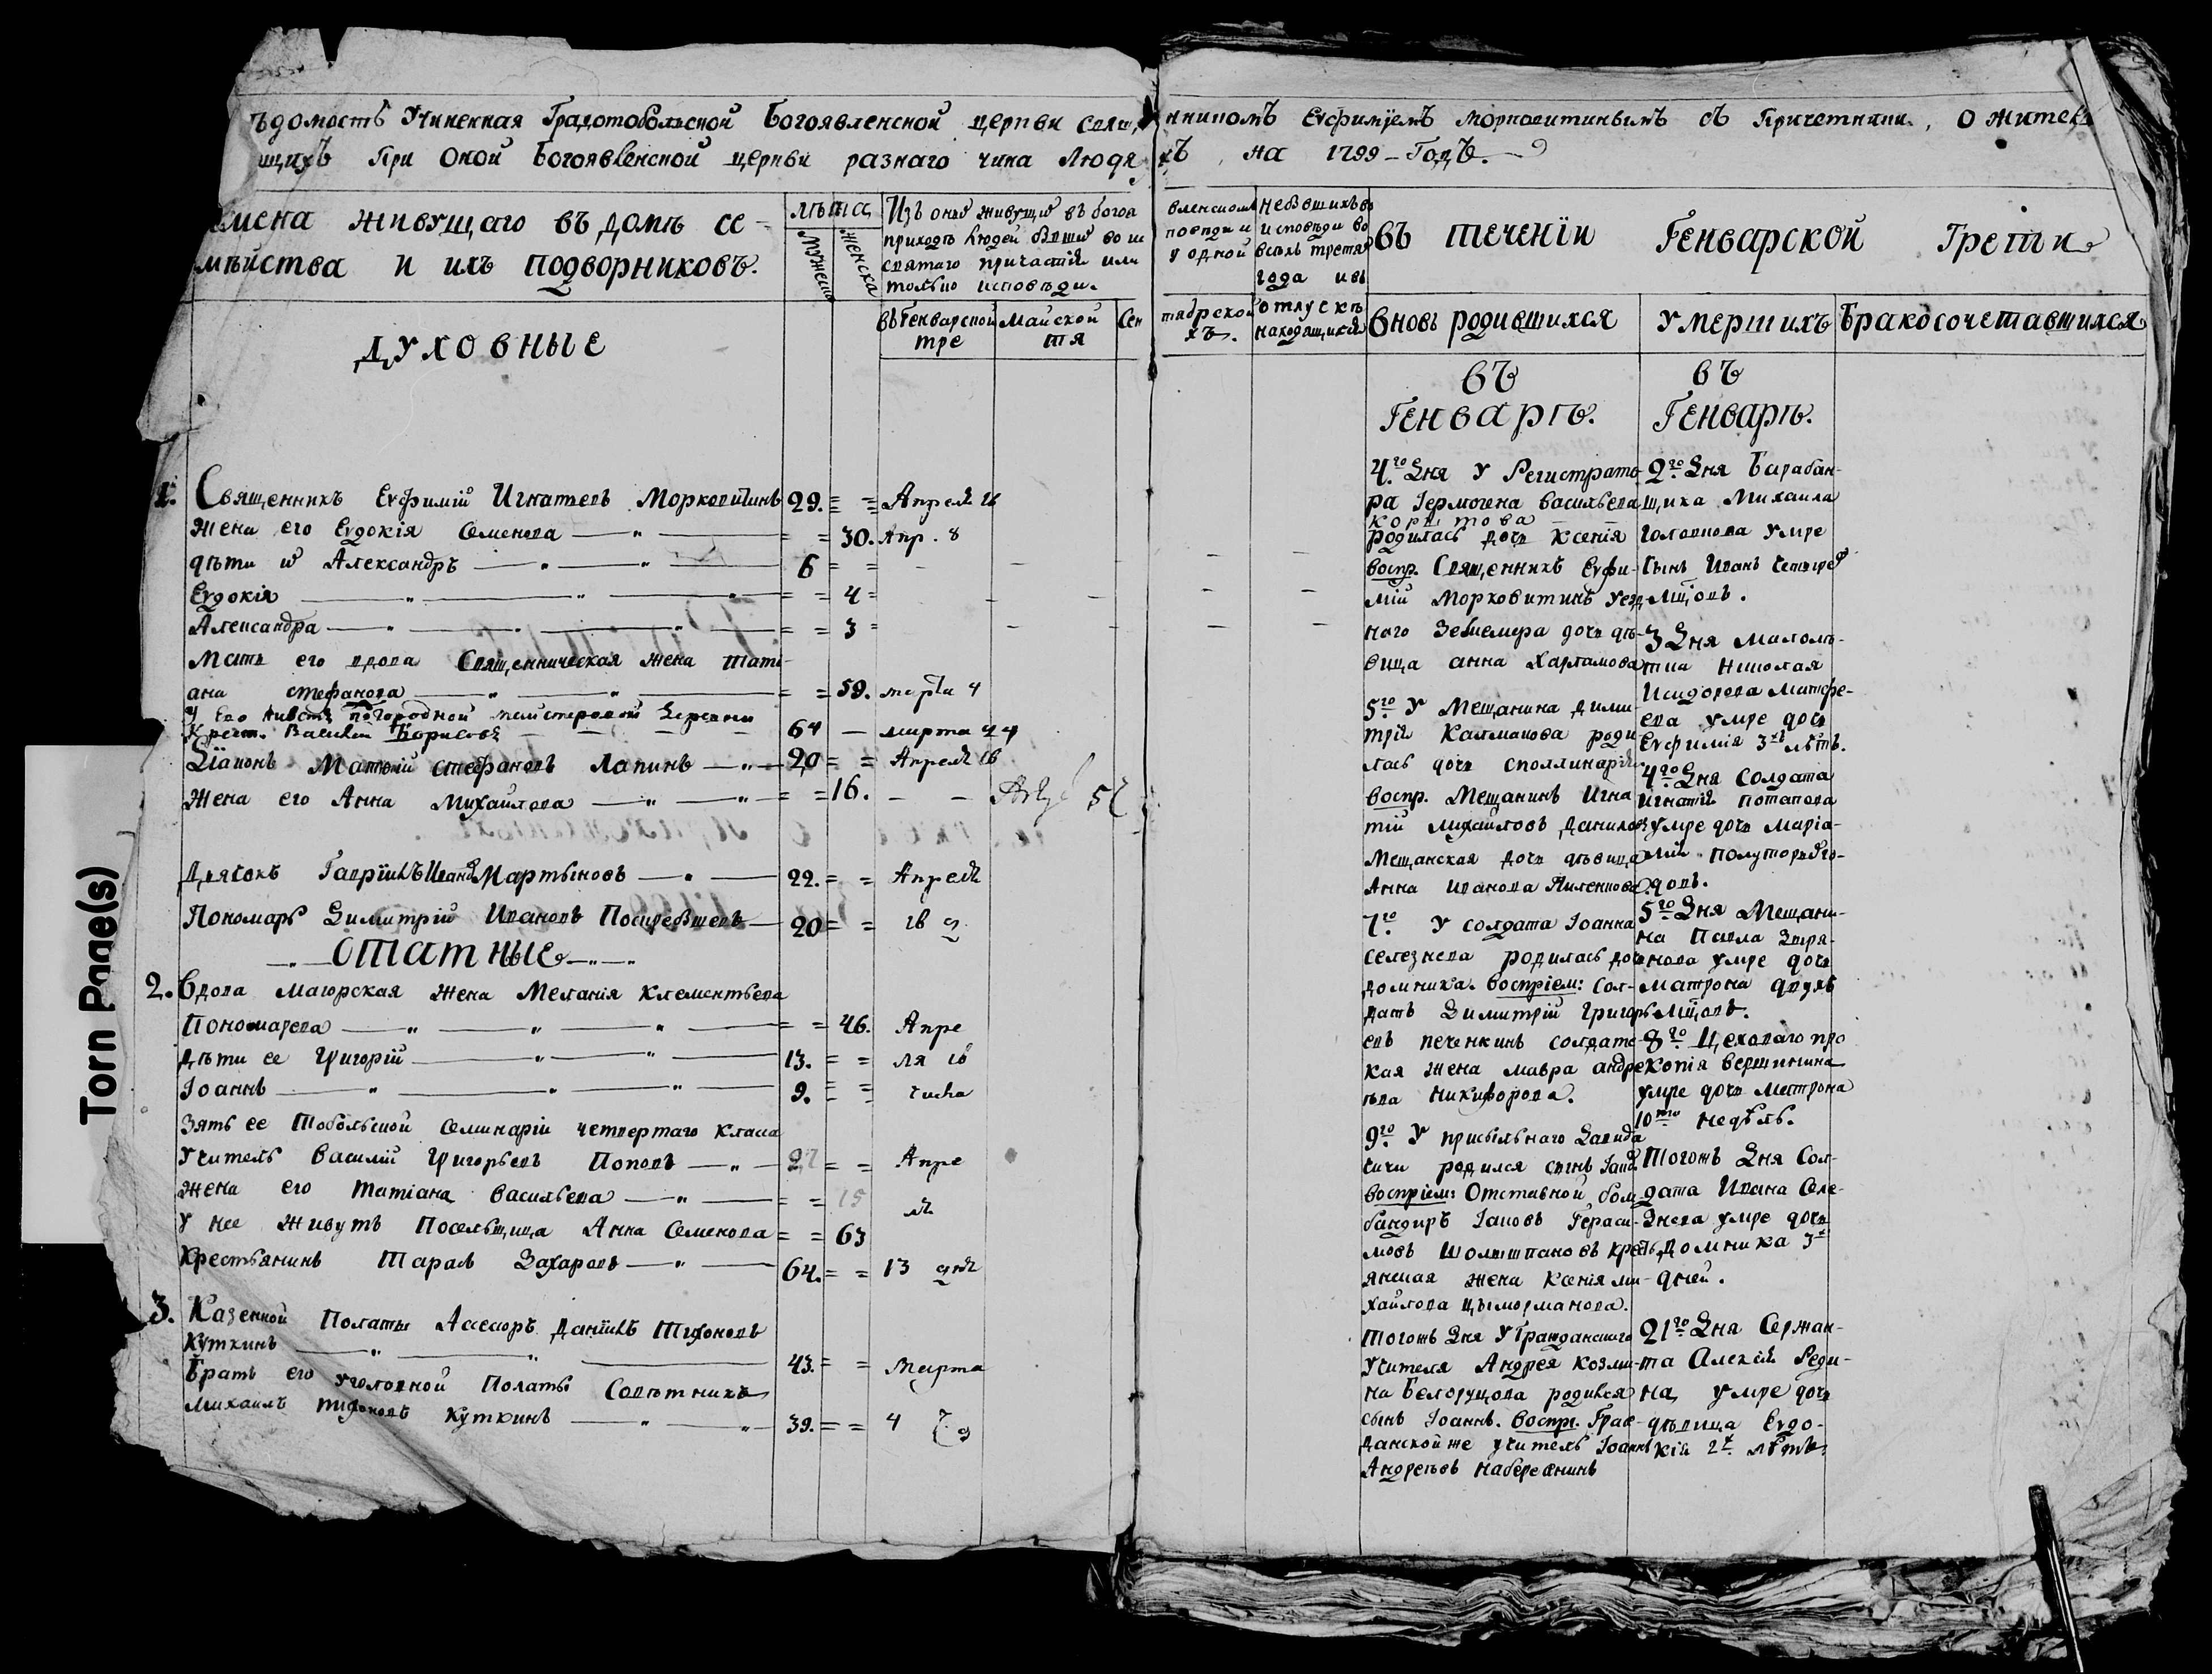 ѣдомость Учиненная Градотобольской Богоявленской церкви свящ
нникомъ Евфимїемъ Морковитинымъ съ Причетники, о жител
щихъ При оной Богоявленской церкви разнаго чина Людя
хъ, на 1799 – Годъ.
мена живущаго въ домѣ се-
мѣйства и ихъ подворниковъ.
лѣта
мужеска
женска
Изъ оныхъ живущихъ въ богоя
приходѣ людей бывшихъ во и
святаго причастія или
только исповѣди.
въ Генварской
тре
Майской
тя
Сен
вленскомъ
повѣди и
у одной
тябрской
хъ.
небывшихъ въ
исповѣди во
всѣхъ третях
года и въ
отлускѣ
находящихся
въ теченїи Генварской Трети
вновь родившихся
умершихъ
бракосочетавшихся
Духовные
1. Священникъ Евфимій Игнатьевъ Морковитинъ 29. Апреля 16
Жена его Евдокія Семенова 30. Апр. 8
дѣти их Александръ 6
Евдокія 4
Александра 3
Мать его вдова Священническая жена Тати-
ана Стефанова 59. марта 4
Крест. Василій Борисовъ 64 марта 4
Дїаконъ Матѳій Стефановъ Лапинъ 20 Апреля 16
Жена его Анна Михайлова 16.
Дьячокъ Гаврїилъ Ивановъ Мартыновъ 22. Апреля
Пономарь Димитрій Ивановъ 20 16 д
Статные
2. Вдова Маіорская жена Меланія Клементьева
Пономарева 46. Апре
Дѣти ее Григорій 13. ля 16
Іоаннъ 9. числа
Зять ее Тобольской семинаріи четвертаго класа
Учитель Василій Григорьевъ Поповъ 27 Апре
жена его Татіана Васильева 15 ля
У нее живутъ Посельщица Анна Семенова 63
Крестьянинъ Тарас Захаровъ 64. 13 дня
3. Казенной Полаты Асесоръ Данїилъ Тихоновъ
Куткинъ 43. Марта
Братъ его уголовной Полаты Совѣтникъ
Михаилъ Тихоновъ Куткинъ 39. 4
въ
Генварѣ.
4го Дня У Регистрато-
ра Гермогена Васильева
родилась дочь Ксенія
воспр. Священникъ Евфи-
мій Морковитинъ уезд-
наго Землемера дочь дѣ-
вица Анна Харламова
5го У Мещанина Дими
трія Калмакова роди
лась дочь
воспр. Мещанинъ Игна
тій Михайловъ Даниловъ
Мещанская дочь дѣвица
Анна Иванова
7го У солдата Іоанна
Селезнева родилась дочь
домника. воспріем: Сол-
датъ Димитрій Григорь
евъ печенкинъ солдатс-
кая жена Мавра Андре
ѣва Никифорова.
9го У присыльнаго Давида
родился сынъ
воспріем: Отставной бом-
бандиръ Іаковъ Гераси-
мовъ крестъ-
янская жена Ксенія ми-
хайлова
Тогожъ Дня У Гражданскаго
Учителя Андрея Козми-
на Белорущова родился
сынъ Іоаннъ. воспрі. Граж-
данской же учитель Іоаннъ
Андреевъ Набережнинъ
въ
Генварѣ.
2го Дня Барабан-
щика Михаила
Голованова умре
сынъ Иванъ четырех
мцовъ.
3 Дня малолѣ-
тна Николая
Исидорова Матфе-
ева умре дочь
Евфимія 3хъ лѣтъ.
4го Дня Солдата
Игнатія потапова
умре дочь Маріа-
на полуторыхго-
довъ.
5го Дня Мещани-
на Павла Зыря-
нова умре дочь
Матрона двухъ
мцовъ.
8го Цеховаго про
копія Вершинина
умре дочь Матрона
10ти недѣль.
Тогожъ Дня Сол-
дата Ивана Селе-
знева умре дочь
Домника 3х
дней.
21го Дня Сержан-
та Алексія Реди-
на, умре дочь
дѣвица Евдо-
кія 2х лѣтъ.
Torn Page(s)